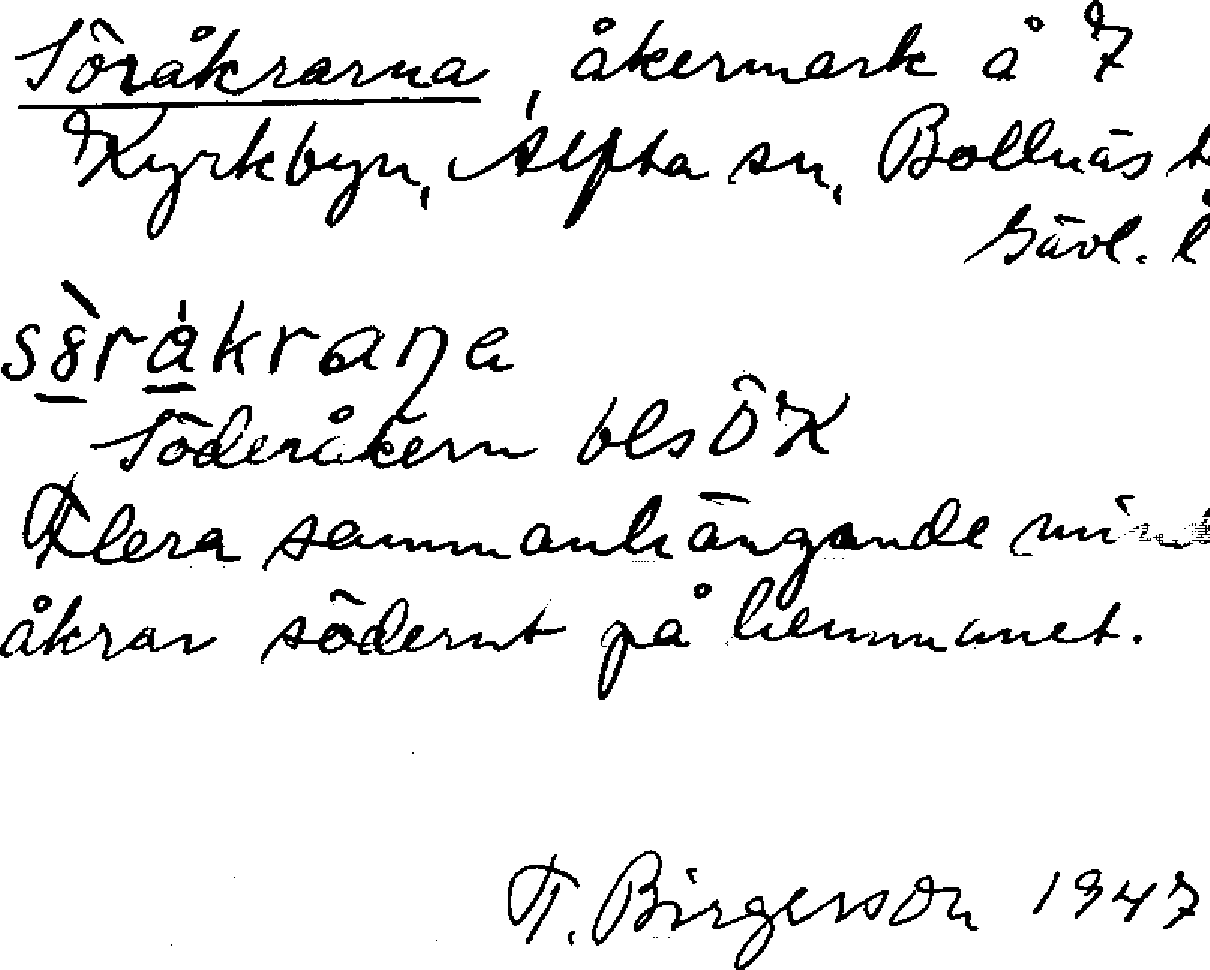 Söråkrarna, åkermark å 7
Kyrkbyn, Alfta sn, Bollnäs t
Gävl. l
söråkraŋa
Söderåkern bls ÖK
Flera sammanhängande
åkrar söderut på hemmanet.
T. Birgerson 1947